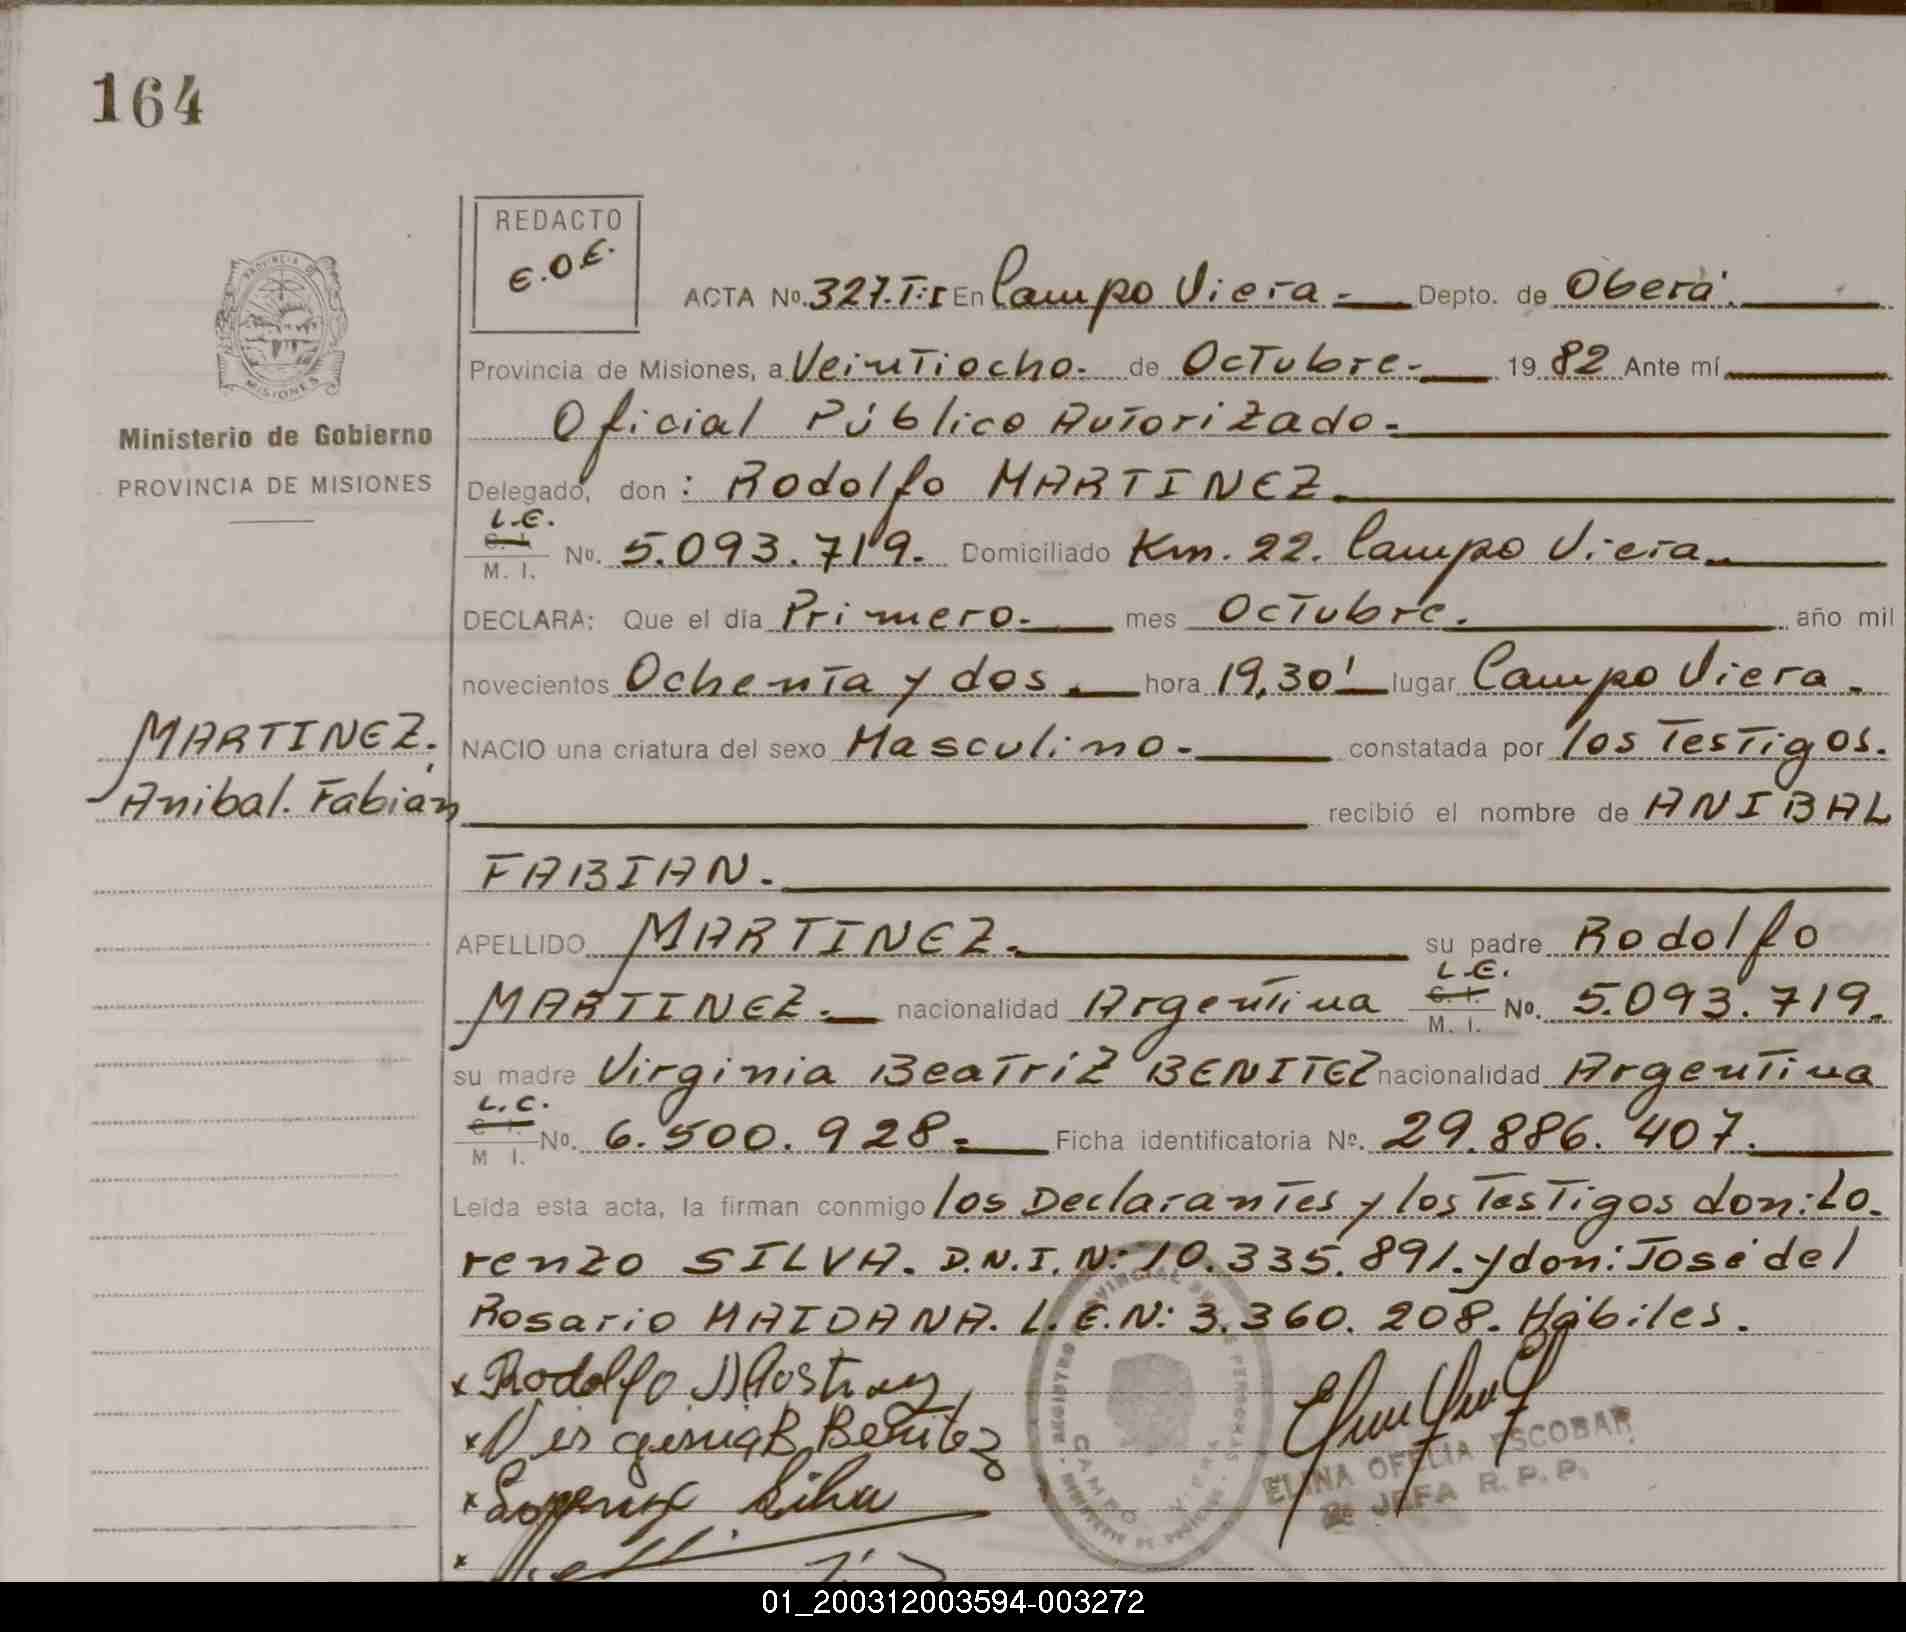 164
REDACTO
E.O.E.
ACTA Nº. 327.T:I En Campo Viera.- Depto. de Oberá.
Provincia de Misiones, a Veintiocho.- de Octubre.- 19 82 Ante mí
Oficial Público Autorizado.-
Delegado, don: Rodolfo MARTINEZ.
L.E.
C. I.
M. I.
Nº. 5.093.719. Domiciliado Km. 22. Campo Viera
DECLARA: Que el día Primero.- mes Octubre. año mil
novecientos Ochenta y dos.- hora 19,30' lugar Campo Viera.
NACIO una criatura del sexo Masculino.- constatada por los Testigos.
recibió el nombre de ANIBAL
FABIAN.
APELLIDO MARTINEZ. su padre Rodolfo
MARTINEZ.- nacionalidad Argentina
L.E.
C. I.
M. I.
Nº. 5.093.719.
su madre Virginia Beatríz BENITEZ nacionalidad Argentina
L.C.
C. I.
M I.
Nº. 6.500.928.- Ficha identificatoria Nº. 29.886.407.
Leída esta acta, la firman conmigo los Declarantes y los Testigos don: Lo-
renzo SILVA. D.N.I.N: 10.335.891. y don: José del
Rosario MAIDANA. L.E.N: 3.360.208. Hábiles.
x Rodolfo
x B. Benitez
x Silva
x
ELINA OFELIA ESCOBAR
JEFA R.P.P.
PROVINCIA DE
MISIONES
Ministerio de Gobierno
PROVINCIA DE MISIONES
MARTINEZ.
Anibal. Fabián
REGISTRO PROVINCIAL DE LAS PERSONAS
CAMPO VIERA
01_200312003594-003272